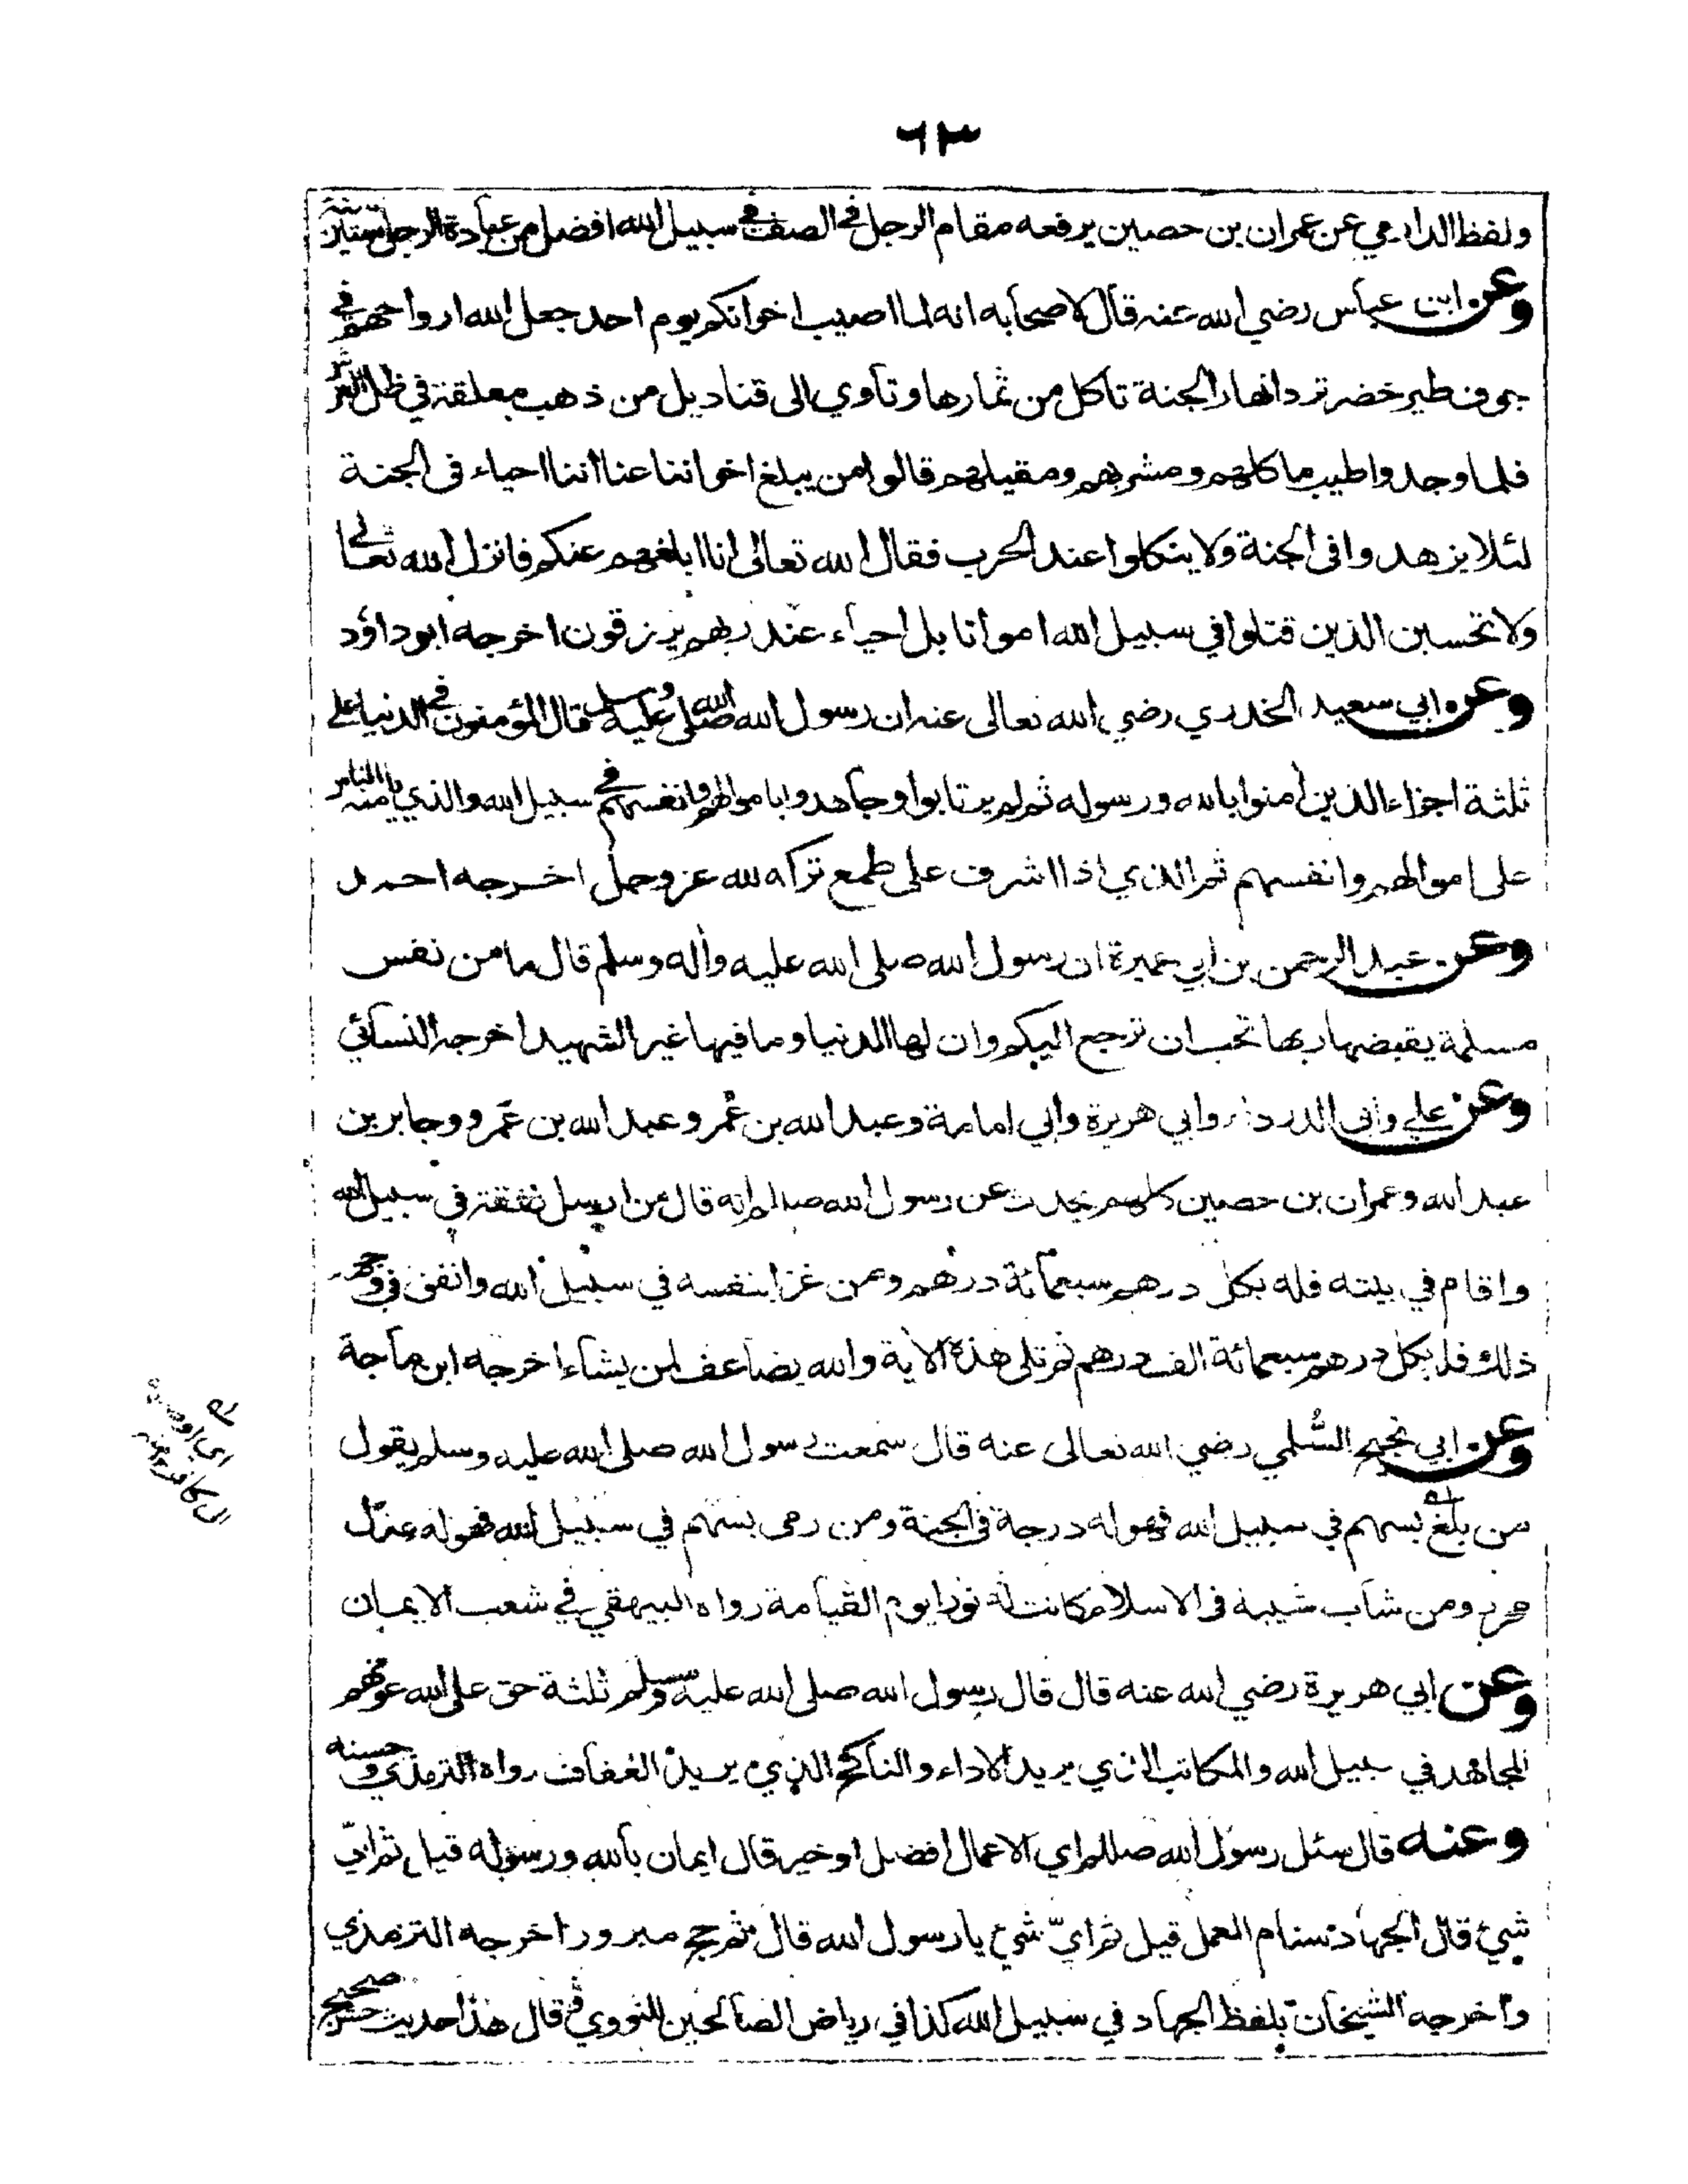 ٦٣
ولفظ الدارمي عن عمران بن حصين يرفعه مقام الرجل في الصف في سبيل الله افضل من عبادة الرجل ستين سنة
وعن ابن عباس رضي الله عنه قال لاصحابه انه لما اصيب اخوانكم يوم احد جعل الله ارواحهم في
جوف طير خضر ترد انهار الجنة تاكل من ثمارها وتأوي الى قناديل من ذهب معلقة في ظل العرش
فلما وجدوا طيب ماكلهم ومشربهم ومقيلهم قالوا من يبلغ اخواننا عنا اننا احياء في الجنة
لئلا يزهدوا في الجنة ولا ينكلوا عند الحرب فقال الله تعالى انا ابلغهم عنكم فانزل الله تعالى
ولا تحسبن الذين قتلوا في سبيل الله امواتا بل احياء عند ربهم يرزقون اخرجه ابوداؤد
وعن ابي سعيد الخدري رضي الله تعالى عنه ان رسول الله صلى الله عليه وسلم قال المؤمنون في الدنيا على
ثلثة اجزاء الذين أمنوا بالله ورسوله ثم لم يرتابوا وجاهدوا باموالهم وانفسهم في سبيل الله والذي يامنه الناس
على اموالهم وانفسهم ثم الذي اذا اشرف على طمع تركه لله عز وجل اخرجه احمد
وعن عبد الرحمن بن ابي عميرة ان رسول الله صلى الله عليه وأله وسلم قال ما من نفس
مسلمة يقبضها ربها تحب ان ترجع اليكم وان لها الدنيا وما فيها غير الشهيد اخرجه النسائي
وعن علي وابي الدرداء وابي هريرة وابي امامة وعبد الله بن عُمر وعبد الله بن عَمرو وجابر بن
عبد الله وعمران بن حصين كلهم يحدث عن رسول الله صللم انه قال من ارسل نفقة في سبيل الله
واقام في بيته فله بكل درهم سبعمائة درهم ومن غزا بنفسه في سبيل الله وانفق في وجهه
ذلك فله بكل درهم سبعمائة الف درهم ثم تلى هذه الأية والله يضاعف لمن يشاء اخرجه ابن ماجة
وعن ابي نجيح السُّلمي رضي الله تعالى عنه قال سمعت رسول الله صلى الله عليه وسلم يقول
من بلغ بسهم في سبيل الله فهو له درجة في الجنة ومن رمى بسهم في سبيل الله فهو له عدل
محرر ومن شاب شيبة في الاسلام كانت له نورا يوم القيامة رواه البيهقي في شعب الايمان
وعن ابي هريرة رضي الله عنه قال قال رسول الله صلى الله عليه وسلم ثلثة حق على الله عونهم
المجاهد في سبيل الله والمكاتب الذي يريد الاداء والناكح الذي يريد العفاف رواه الترمذي وحسنه
وعنه قال سئل رسول الله صللم اي الاعمال افضل او خير قال ايمان بالله ورسوله قيل ثم ايّ
شيئ قال الجهاد سنام العمل قيل ثم ايّ شيئ يا رسول الله قال ثم حج مبرور اخرجه الترمذي
واخرجه الشيخان بلفظ الجهاد في سبيل الله كذا في رياض الصالحين للنووي وقال هذا حديث حسن صحيح